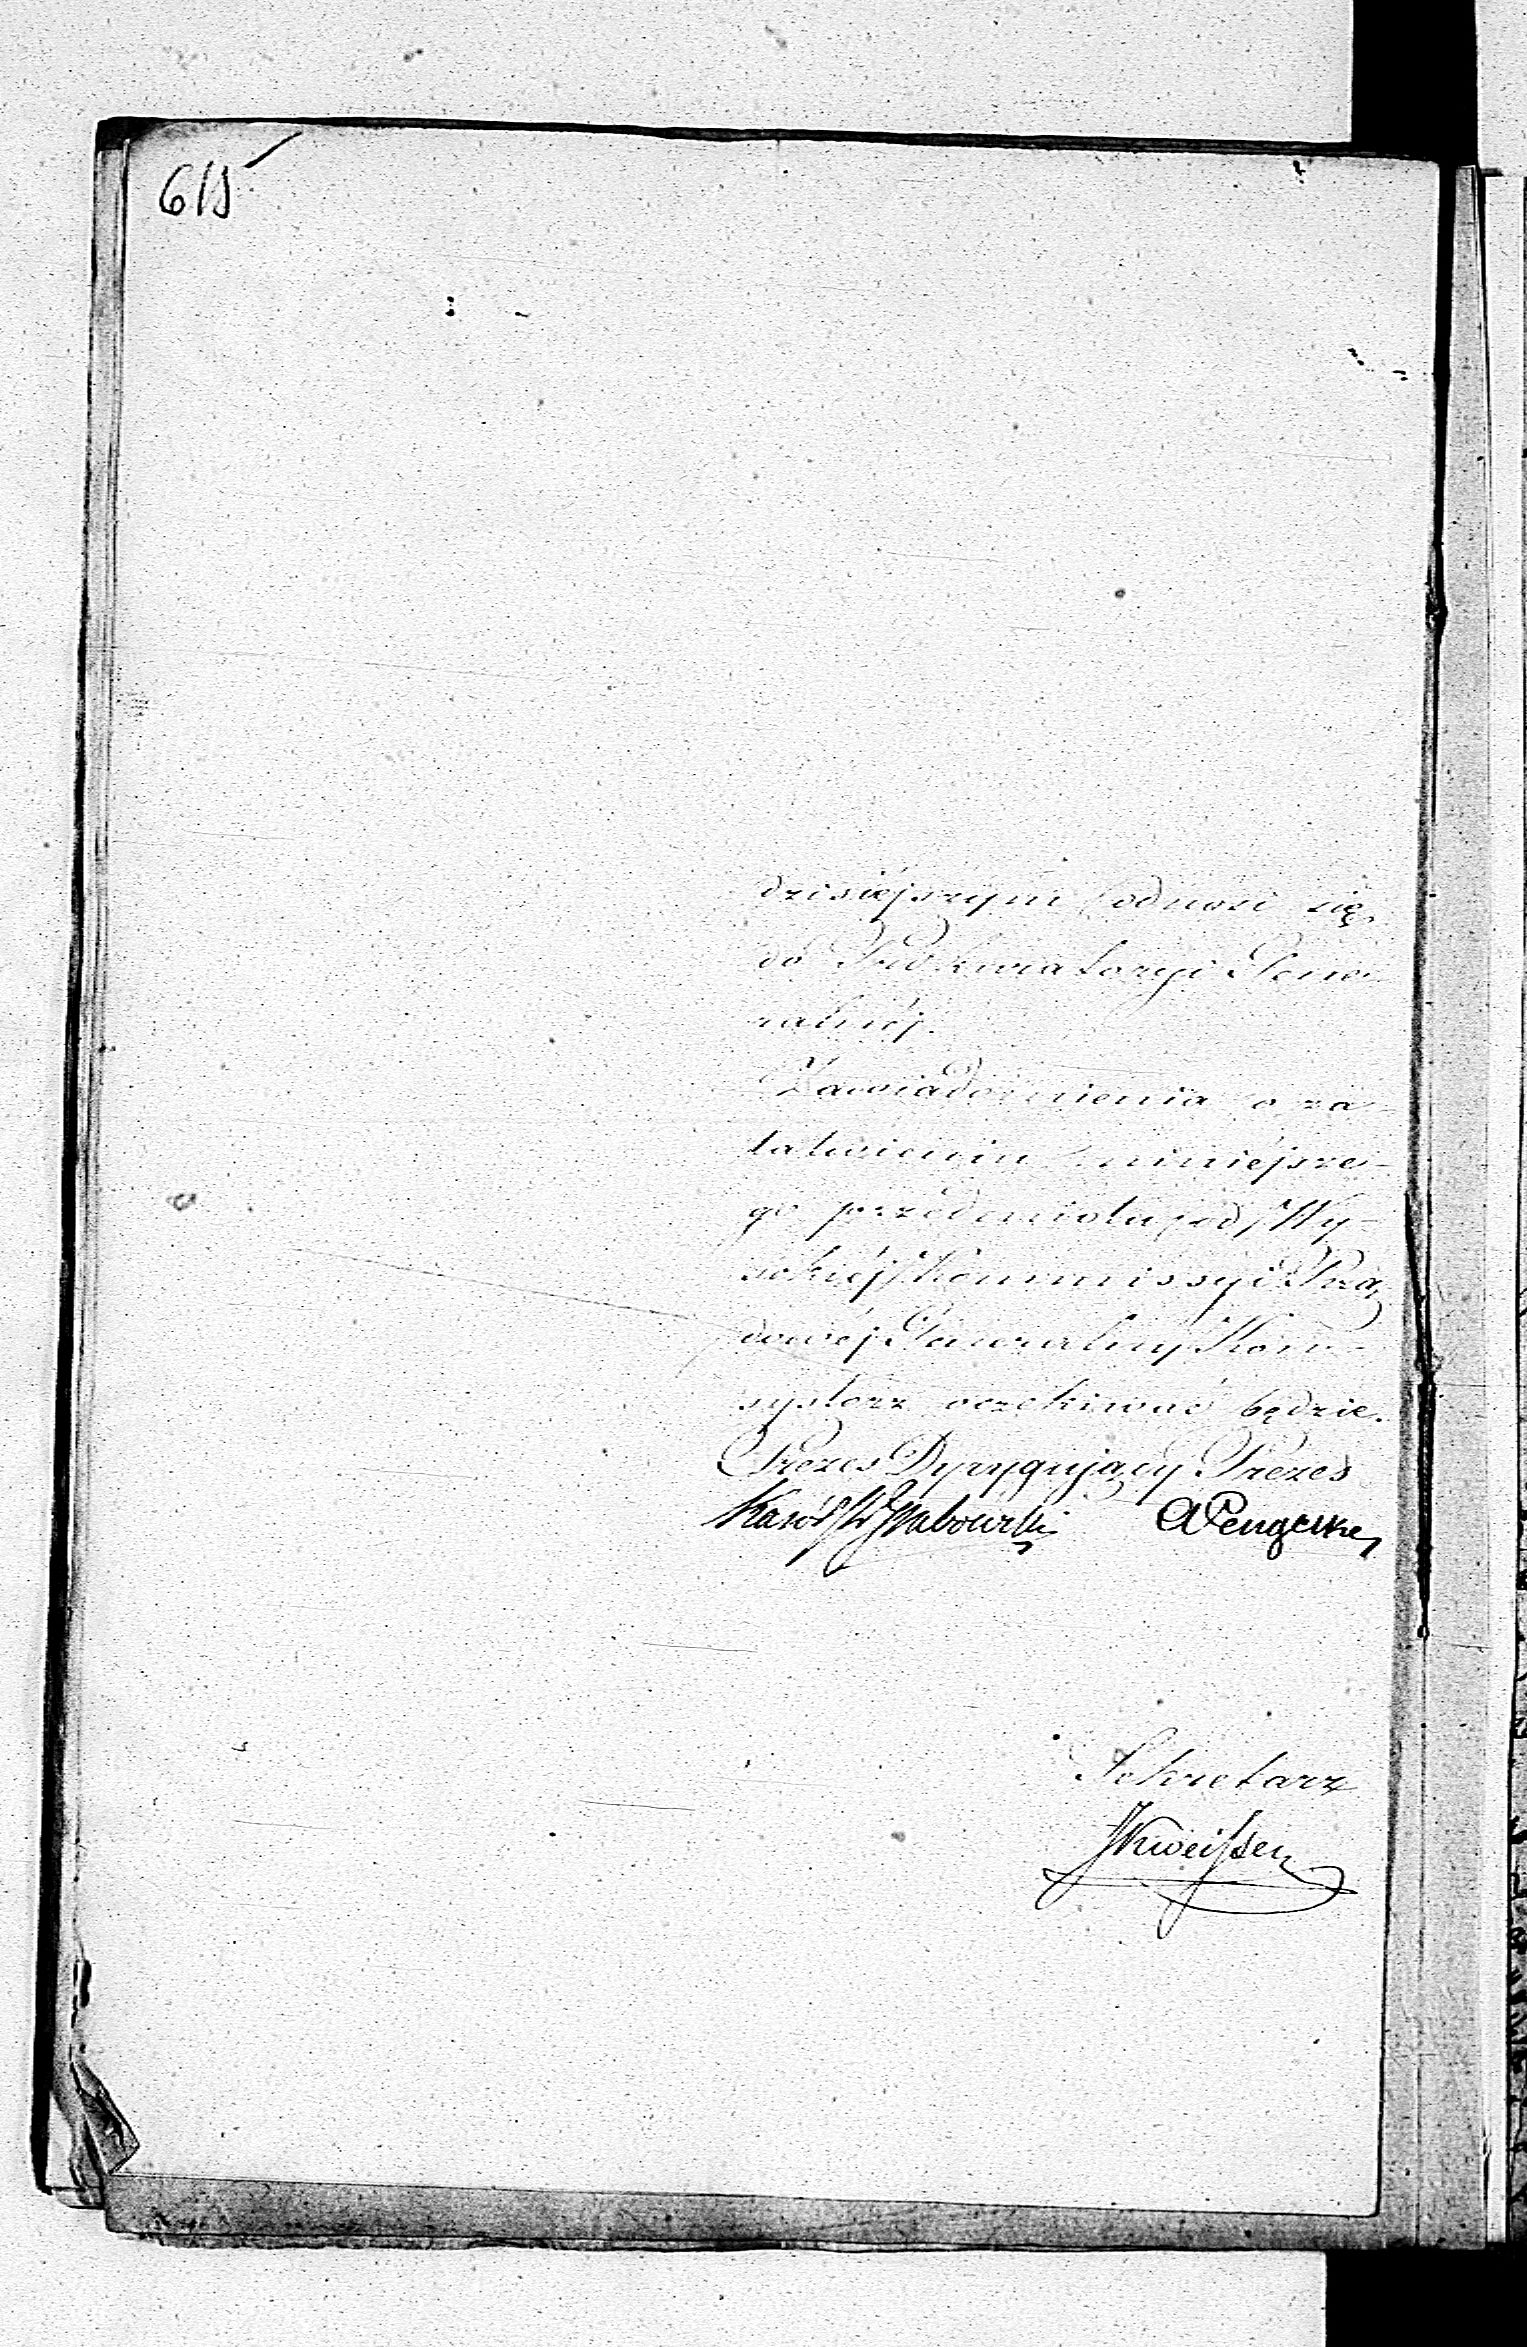 615
dzisiéjszym odnosi się
do Prokuratoryi Gene-
ralnéj.
Zawiadomienia o za-
łatwieniu niniéjsze-
go przedmiotu od Wy-
sokiéj Kommissyi Rzą-
dowéj Generalny Kon-
systorz oczekiwać będzie.
Prezes Dyrygujący Prezes
Karól Hr Grabowski
Sekretarz